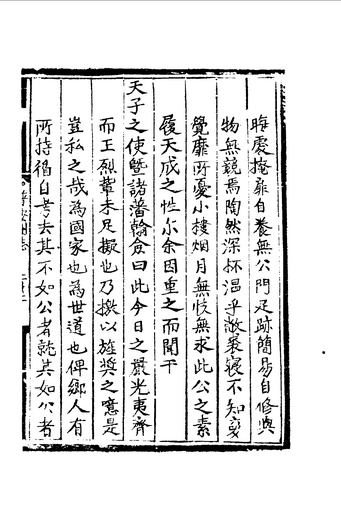 晦處掩扉自養無公門足跡簡易自修與
物無競焉陶然深杯温乎敝裘寢不知夏
覺靡所憂小樓烟月無忮無求此公之素
履天成之性尔余因重之而聞于
天子之使暨諸藩翰僉曰此今日之嚴光夷齊
而王烈輩未足擬也乃檄以旌奬之噫是
豈私之哉為國家也為世道也俾鄉人有
所持循自考去其不如公者就其如公者